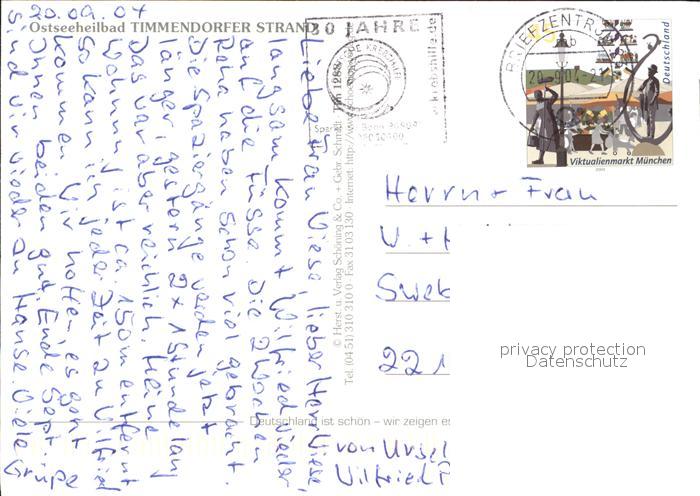 20.09.04
Ostseeheilbad TIMMENDORFER STRAND
Liebe Frau Viese, lieber Herr Viese,
langsam kommt Wilfried wieder
auf die Füsse. Die 2 Wochen
Reha haben schon viel gebracht.
Die Spaziergänge werden jetzt
länger, gestern 2x 1 Stunde lang
Das war aber reichlich. Meine
Wohnung ist ca. 150 m entfernt
So kann ich jeder Zeit zu Wilfried
kommen. Wir hoffen, es geht
Ihnen beiden gut. Ende Sept.
sind wir wieder zu Hause. Viele Grüße
von Ursel
Wilfried P
30 JAHRE
krebshilfe.de
BRIEFZENTRUM
20.9.04-21
Deutschland
Viktualienmarkt München
Herrn + Frau
W. +
Sweb
22
© Herst. u. Verlag Schöning & Co. + Gebr. Schmidt
Tim 1288
Tel. (04 51) 310 310 0 · Fax 31 03 130 · Internet: http://
Deutschland ist schön – wir zeigen es
privacy protection
Datenschutz